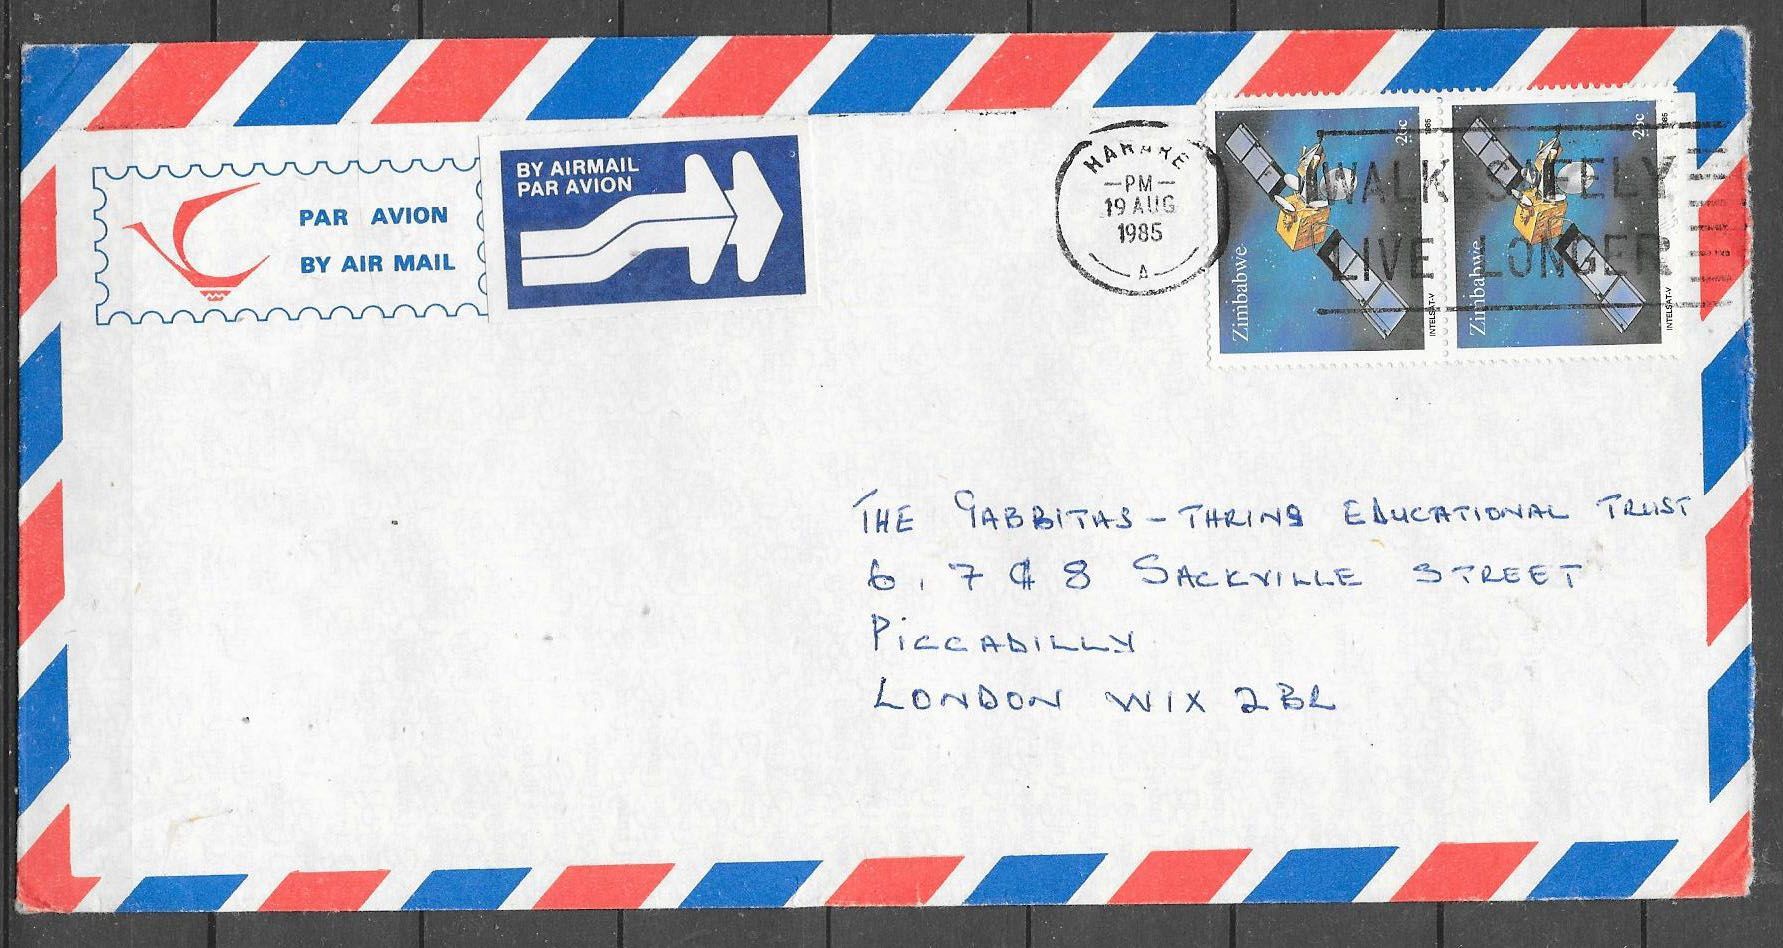 PAR AVION
BY AIR MAIL
BY AIRMAIL
PAR AVION
HARARE
—PM—
19 AUG
1985
A
WALK SAFELY
LIVE LONGER
Zimbabwe
26c
1985
INTELSAT-V
Zimbabwe
26c
1985
INTELSAT-V
THE GABBITAS - THRING EDUCATIONAL TRUST
6, 7 & 8 SACKVILLE STREET
PICCADILLY
LONDON W1X 2BR